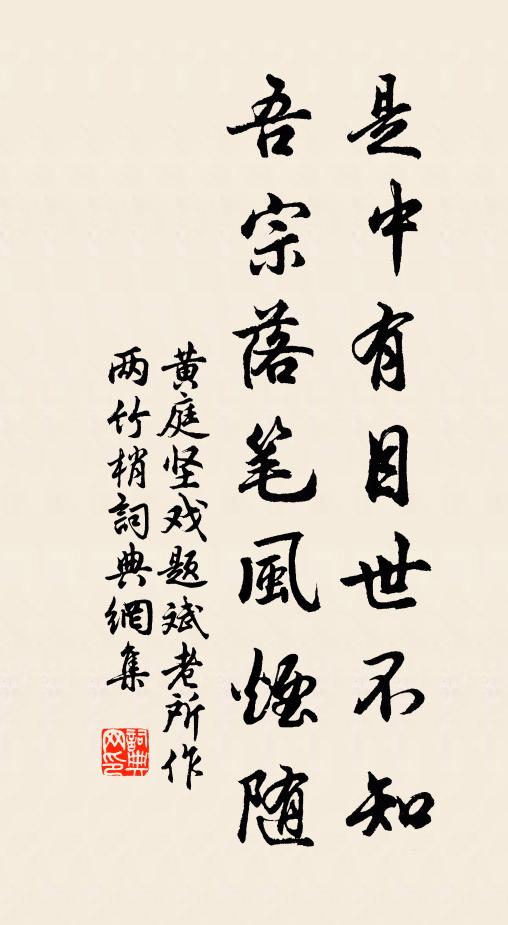 是中有目世不知
吾宗落笔風煙随
黄庭坚戏题斌老所作
两竹梢詞典網集
詞典网印